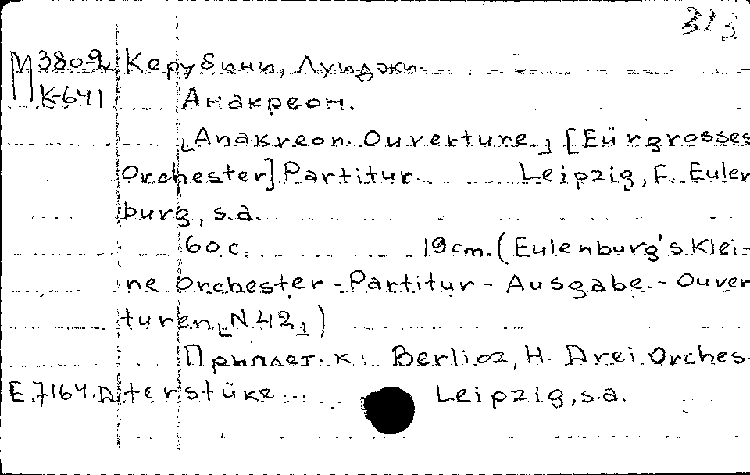 313
М 380-2 Керубини, Луиджи.
К-641 Анакреон.
[Anakreon. Ouverture.] [Eür grosses
Orchester] Partitur. Leipzig, E. Eulen
burg, s.a.
60 c. 19 cm. (Eulenburg's Klei-
ne Orchester-Partitur-Ausgabe.-Ouver
turen [N 42])
Приплет. к: Berlioz, H. Drei Orches-
E.7164.D terstüke... Leipzig, s.a.